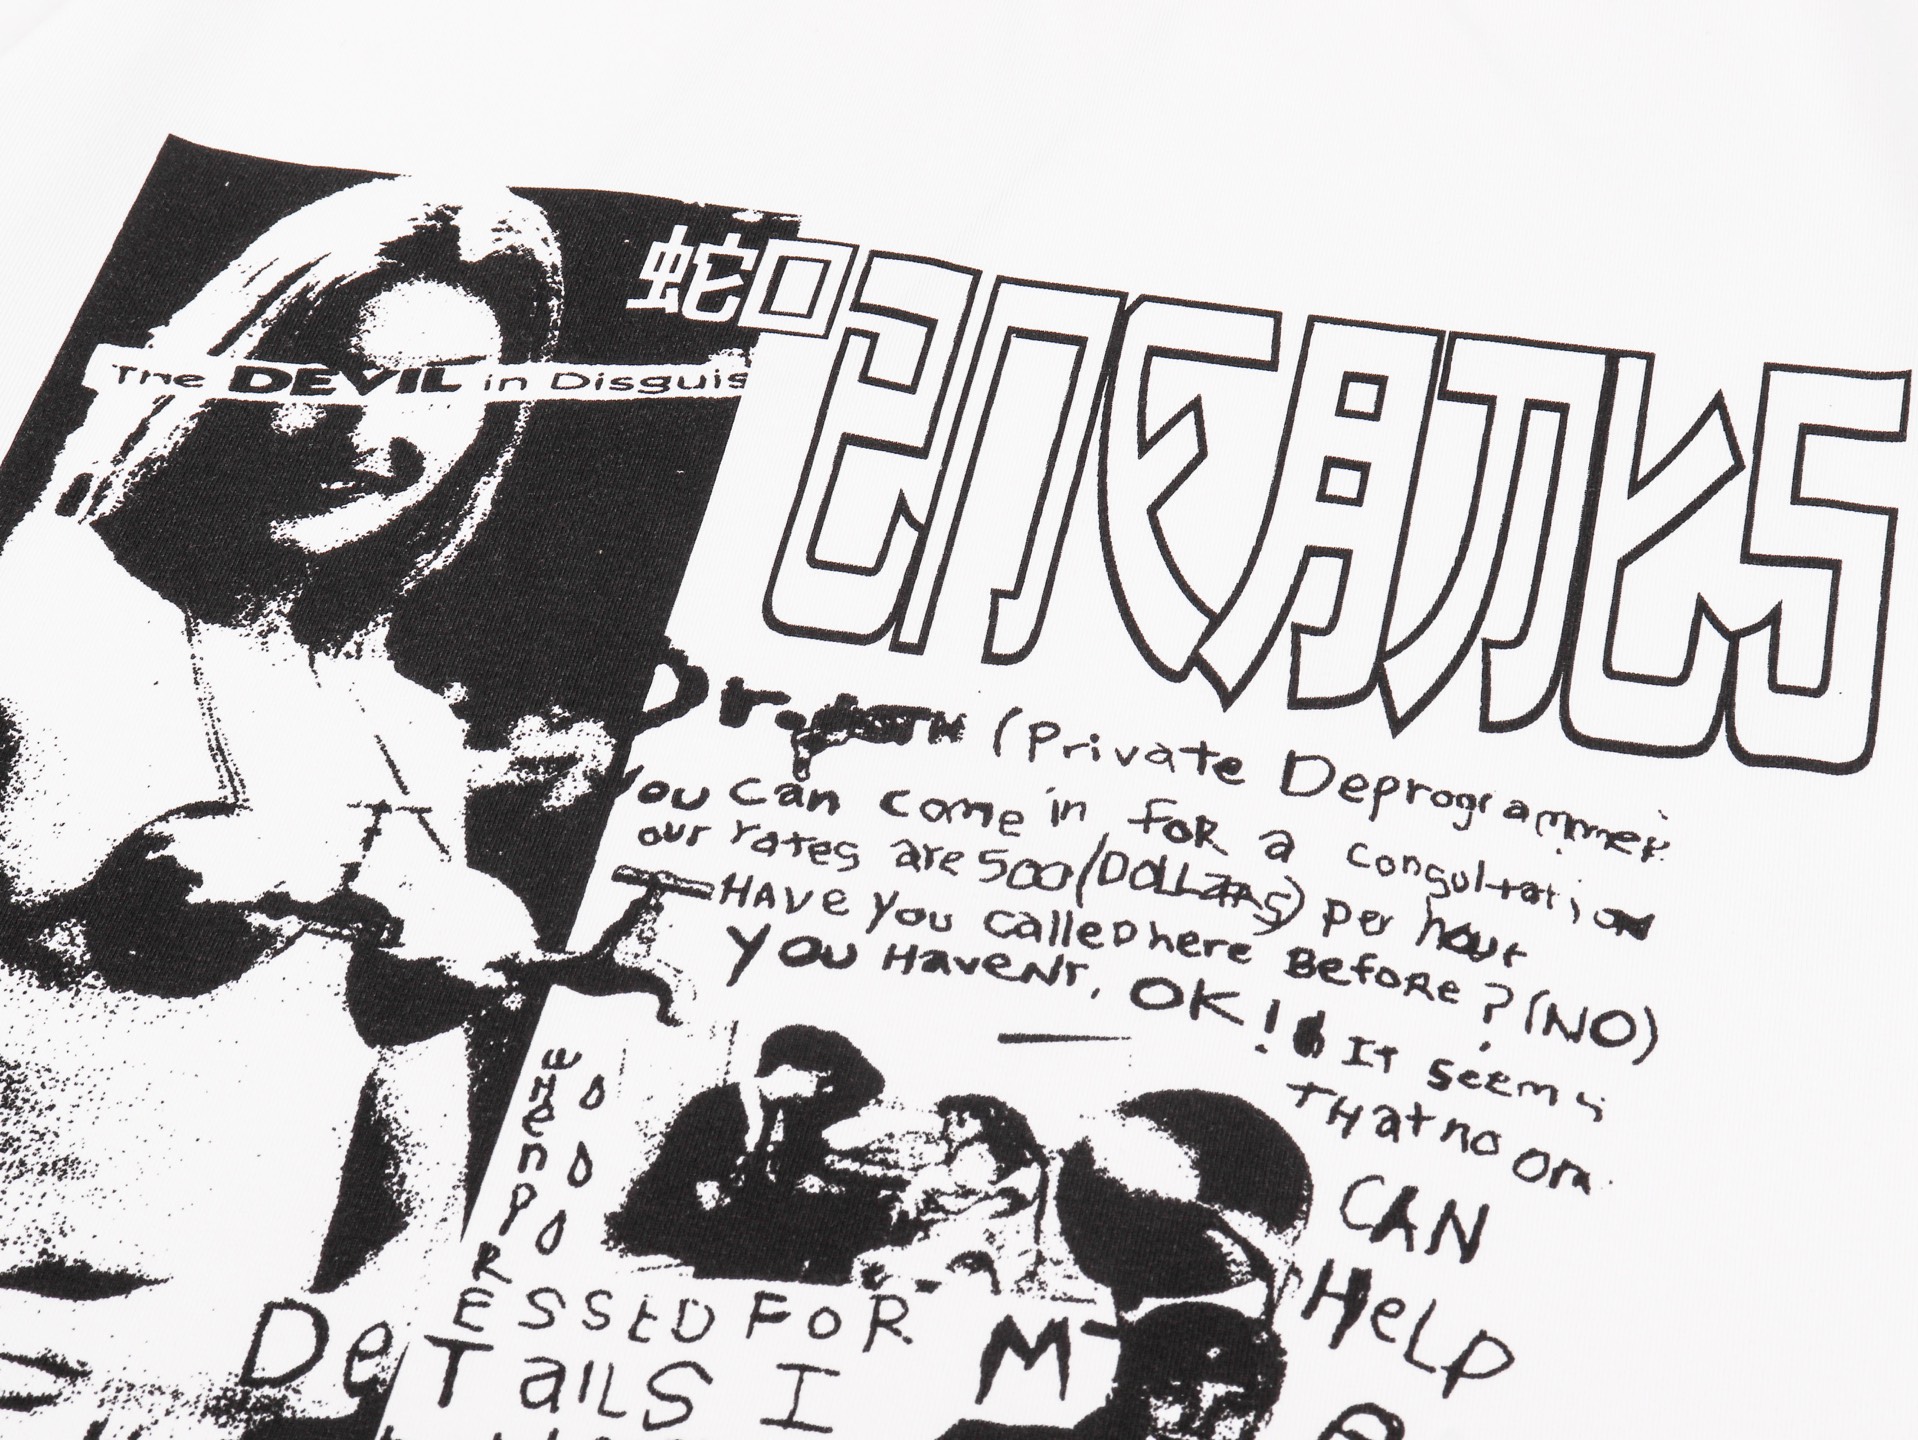 蛇口
The DEVIL in Disguis
Dr. (Private Deprogrammer
You can come in FOR a consultation
our rates are 500 (DOLLARS) per hour
HAVe you calleD here BeFoRe? (NO)
you Havent, OK! IT seems
THat no one
CAN
HeLP
wHenPR
ESStD FoR M
DeTaiLS I